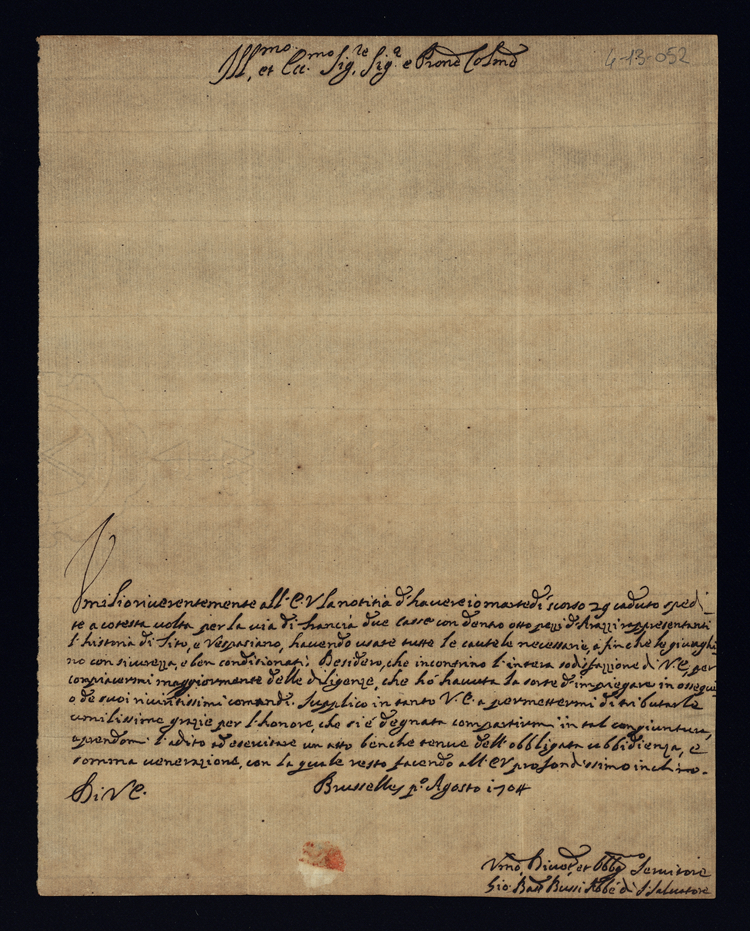 Ill.mo, et Ecc.mo Sig.re Sig.r e Prone Colmo
4-13-052
Umilio riverentemente all'E.V. la notitia d'haver io martedi scorso 29 caduto spedi_
te a cotesta volta per la via di francia due Casse con dentro otto pezzi d'Arazzi rappresentanti
l'historia di Tito, e Vespasiano, havendo usate tutte le cautele necessarie, a fin che le giunghi
no con sicurezza, e ben conditionati. Desidero, che incontrino l'intera sodisfazzione di V.E. per
compiacermi maggiormente delle diligenze, che hò havuta la sorte d'impiegare in ossequi
o de suoi riveritissimi comandi. Supplico in tanto V.E. a permettermi di tributarle
umilissime grazie per l'honore, che si è degnata compartirmi in tal congiuntura,
aprendomi l'adito ad esercitare un atto benche tenue dell'obbligata ubbidienza, e
somma venerazione, con la quale resto facendo all'E.V. profondissimo inchino.
Di V.E.
Brusselles p.o Agosto 1704
Vmo, Divot.o, et Obbmo Servitore
Gio: Batt Bussi Abbe di S. Salvatore